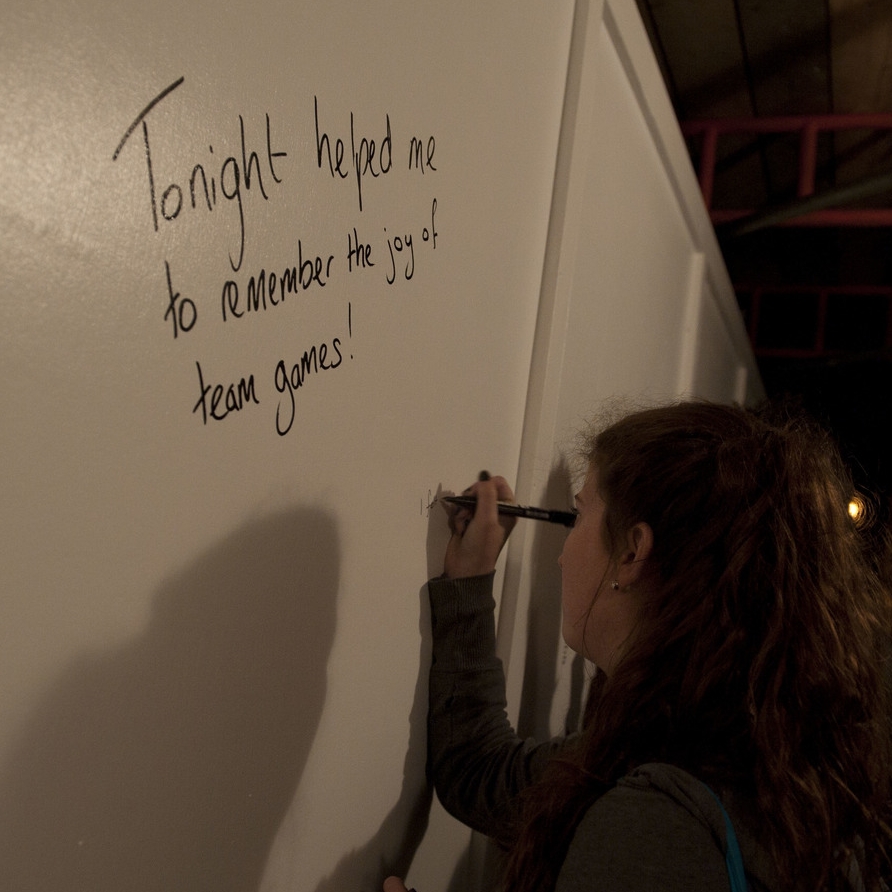 Tonight helped me
to remember the joy of
team games!